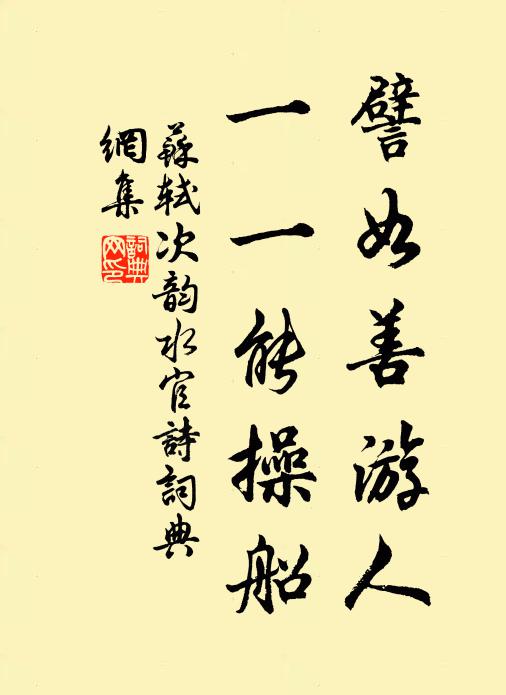 譬如善游人
一一能操船
蘇軾次韵水官詩詞典
網集
詞典網印